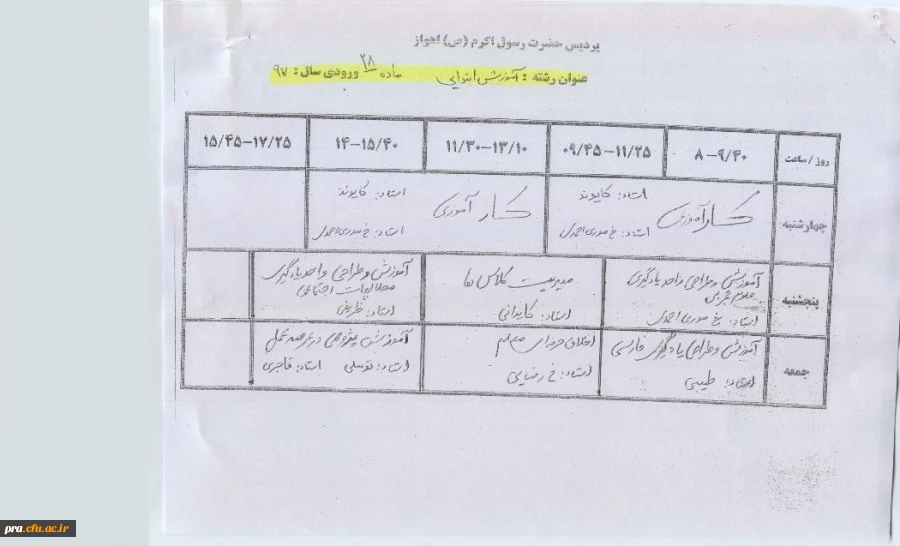 پردیس حضرت رسول اکرم (ص) اهواز
عنوان رشته : آموزش ابتدایی ماده ۲۸ ورودی سال : ۹۷
روز / ساعت ۸-۹/۴۰ ۰۹/۴۵-۱۱/۲۵ ۱۱/۳۰-۱۳/۱۰ ۱۴-۱۵/۴۰ ۱۵/۴۵-۱۷/۲۵
چهارشنبه
کارآموزی
استاد: کایوند
استاد: خ سوری احمدی
کارآموزی
استاد: کایوند
استاد: خ سوری احمدی
پنجشنبه
آموزش و طراحی واحد یادگیری
علوم تجربی
استاد: خ سوری احمدی
مدیریت کلاس ها
استاد: کایدانی
آموزش و طراحی واحد یادگیری
مطالعات اجتماعی
استاد: ظریفی
جمعه
آموزش و طراحی یادگیری فارسی
استاد: طیبی
اخلاق حرفه ای معلم
استاد: خ رضایی
آموزش پژوهی در عرصه عمل
استاد: توسلی استاد: قاجری
pra.cfu.ac.ir